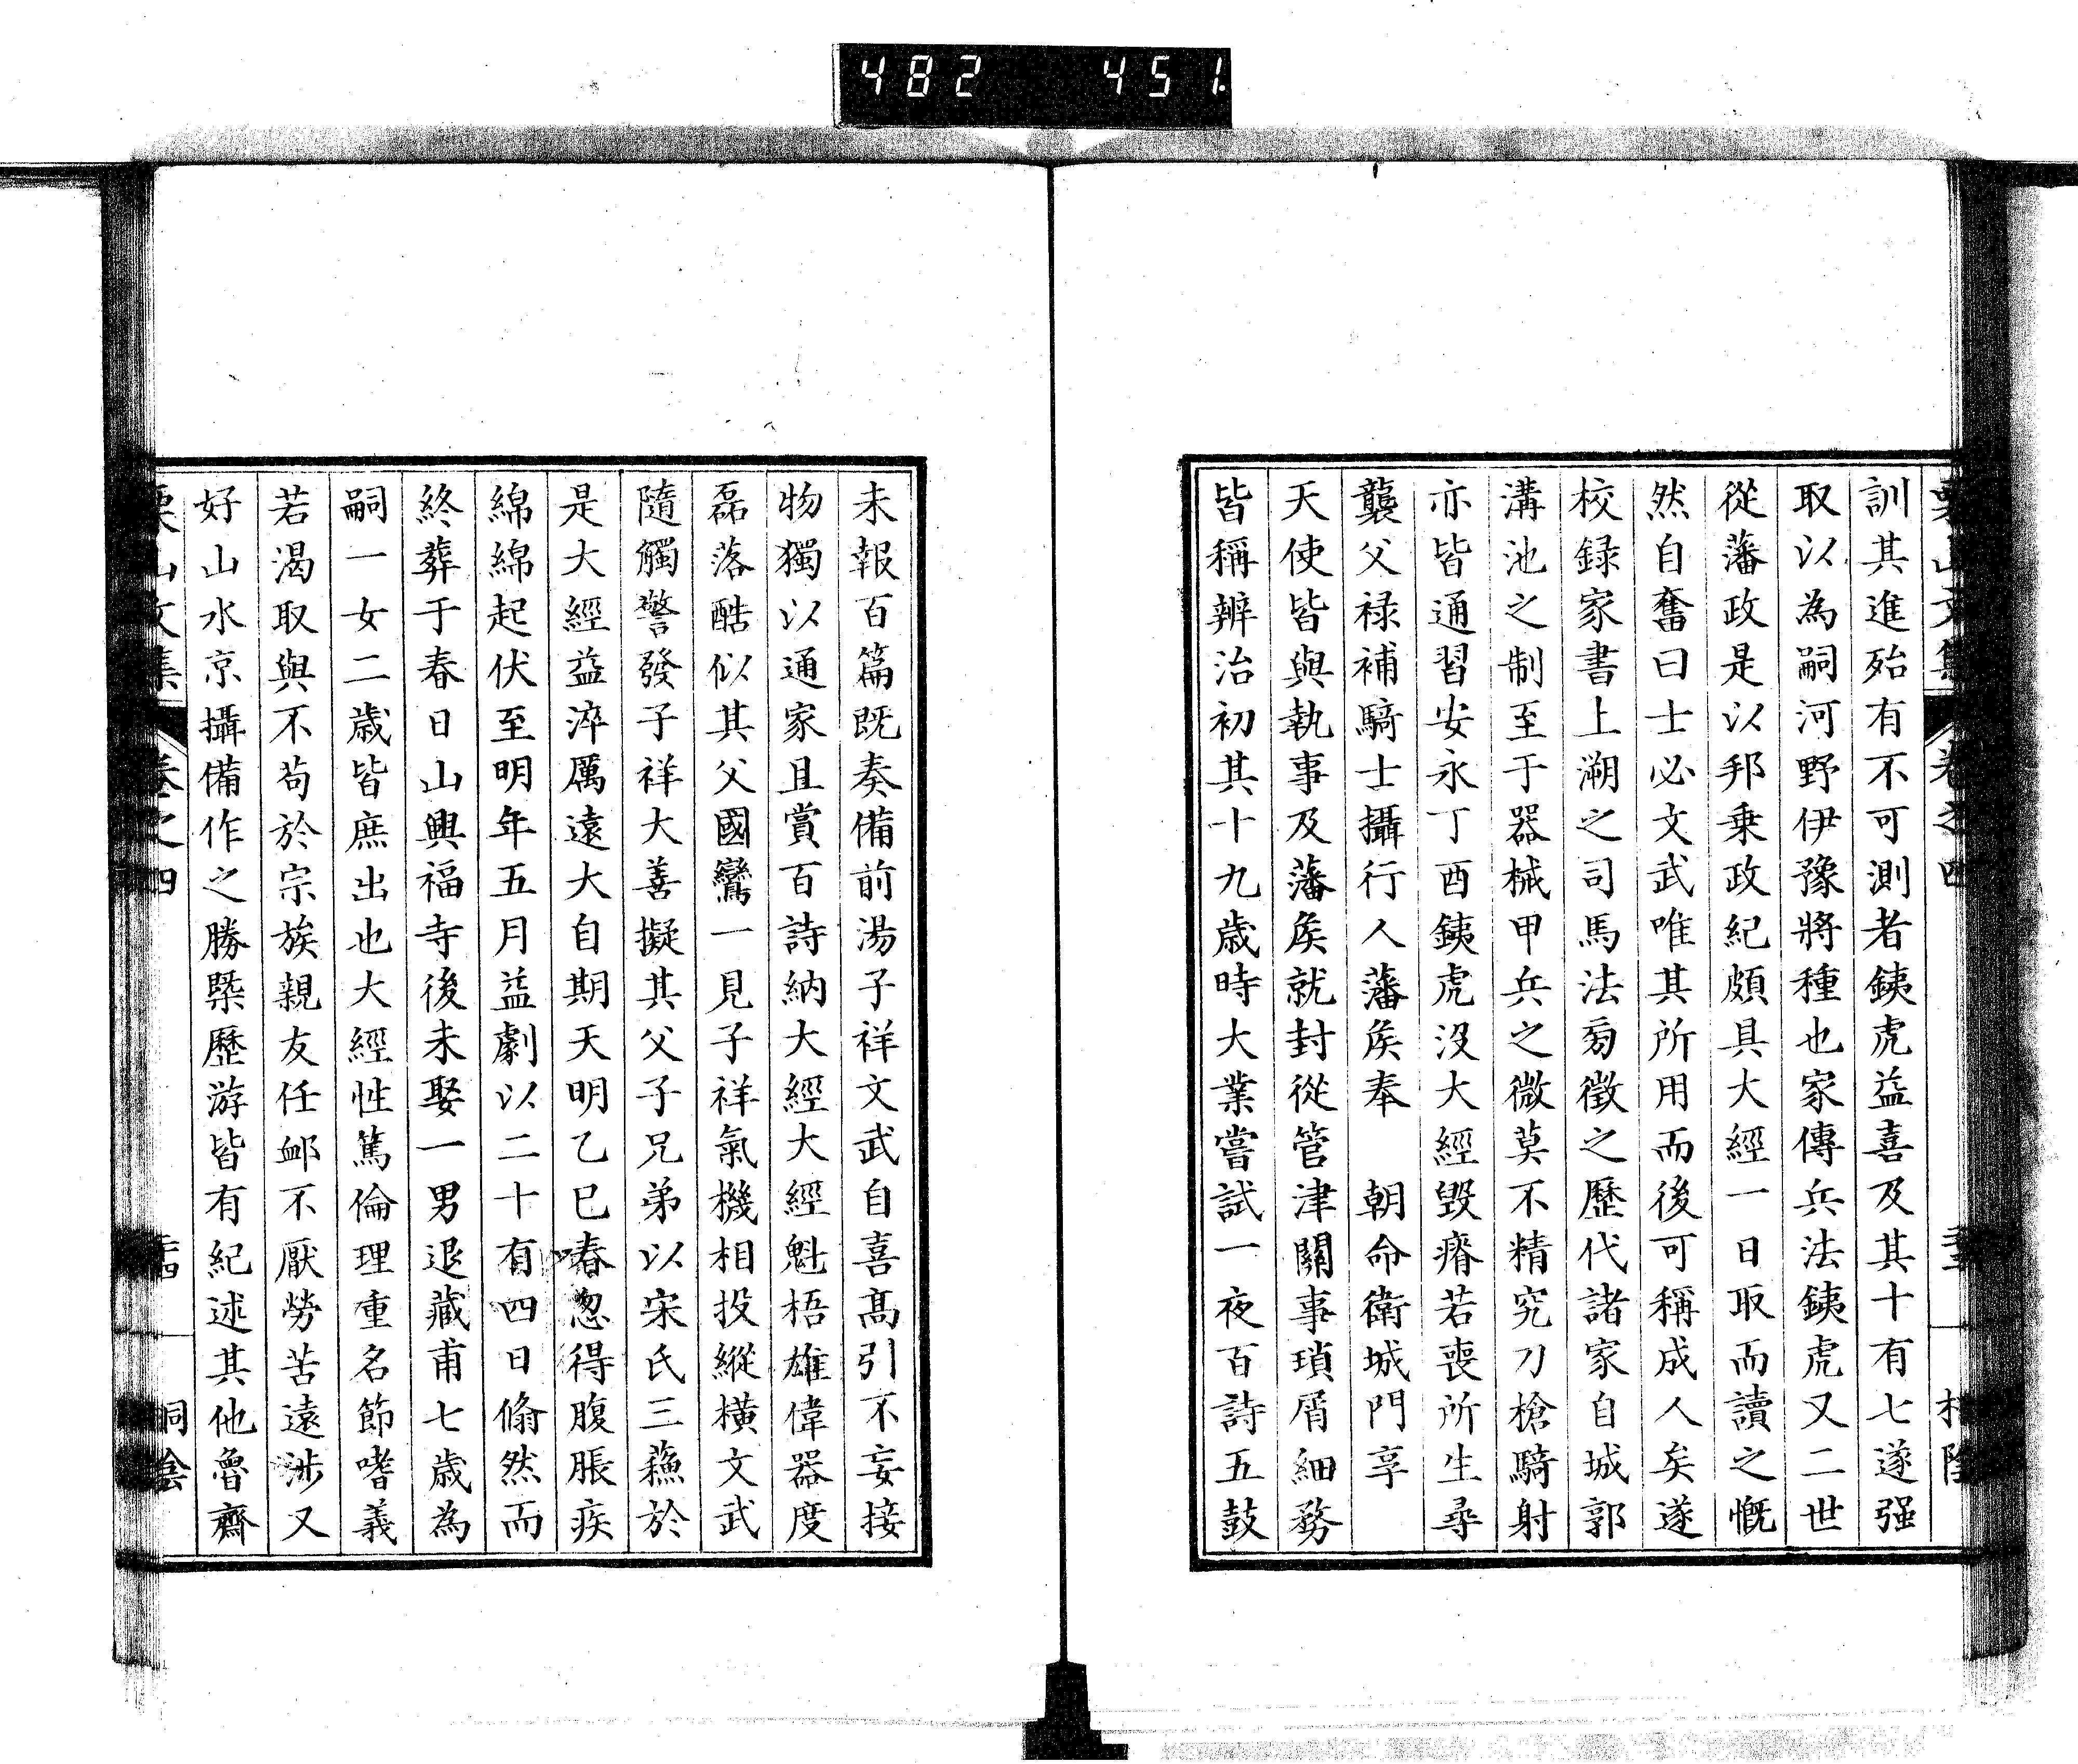 482 451
訓其進殆有不可測者銕虎益喜及其十有七遂强
取以為嗣河野伊豫將種也家傳兵法銕虎又二世
從藩政是以邦乗政紀頗具大經一日取而讀之慨
然自奮曰士必文武唯其所用而後可稱成人矣遂
校録家書上溯之司馬法旁徵之歷代諸家自城郭
溝池之制至于器械甲兵之微莫不精究刀槍騎射
亦皆通習安永丁酉銕虎沒大經毀瘠若喪所生尋
襲父祿補騎士攝行人藩矦奉　朝命衛城門享
天使皆與執事及藩矦就封從管津關事瑣屑細務
皆稱辨治初其十九歳時大業嘗試一夜百詩五鼓
未報百篇既奏備前湯子祥文武自喜髙引不妄接
物獨以通家且賞百詩納大經大經魁梧雄偉器度
磊落酷似其父國鸞一見子祥氣機相投縱橫文武
隨觸警發子祥大善擬其父子兄弟以宋氏三蘓於
是大經益淬厲遠大自期天明乙巳春忽得腹脹疾
綿綿起伏至明年五月益劇以二十有四日翛然而
終葬于春日山興福寺後未娶一男退藏甫七歳為
嗣一女二歳皆庶出也大經性篤倫理重名節嗜義
若渇取與不苟於宗族親友任衈不厭勞苦遠涉又
好山水京攝備作之勝槩歷游皆有紀述其他魯齋
栗山文集　卷之四